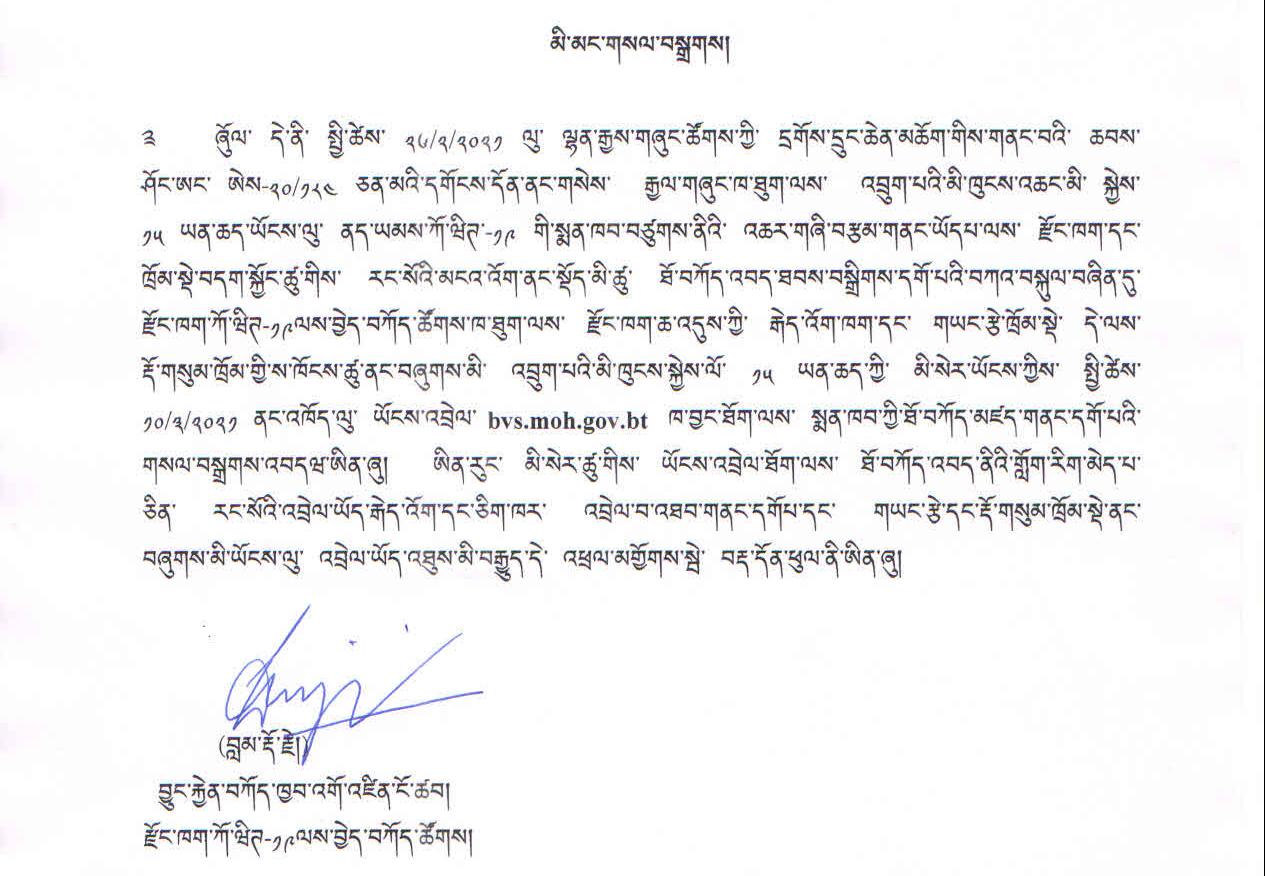 མི་མང་གསལ་བསྒྲགས།
༣ ཞོུལ་ དེ་ནི་ སྤྱི་ཚེས་ ༢༦/༢/༢༠༢༡ ལུ་ ལྷན་རྒྱས་གཞུང་ཚོགས་ཀྱི་ དྲགོས་དྲུང་ཆེན་མཆོག་གིས་གནང་བའི་ ཆབས་
ཤོང་ཨང་ ཨེས་-༢༠/༡༢༤ ཅན་མའི་དགོངས་དོན་ནང་གསེས་ རྒྱལ་གཞུང་ཁ་ཐུག་ལས་ འབྲུག་པའི་མི་ཁུངས་འཆང་མི་ སྐྱེས་
༡༥ ཡན་ཆད་ཡོངས་ལུ་ ནད་ཡམས་ཀོ་ཝིཌ་-༡༩ གི་སྨན་ཁབ་བཙུགས་ནིའི་ འཆར་གཞི་བརྩམ་གནང་ཡོདཔ་ལས་ རྫོང་ཁག་དང་
ཁྲོམ་སྡེ་བདག་སྐྱོང་ཚུ་གིས་ རང་སོའི་མངའ་འོག་ནང་སྡོད་མི་ཚུ་ ཐོ་བཀོད་འབད་ཐབས་བསྒྲིགས་དགོ་པའི་བཀའ་བསྐུལ་བཞིན་དུ་
རྫོང་ཁག་ཀོ་ཝིཌ་-༡༩ལས་བྱེད་བཀོད་ཚོགས་ཁ་ཐུག་ལས་ རྫོང་ཁག་ཆ་འདུས་ཀྱི་ རྒེད་འོག་ཁག་དང་ གཡང་རྩེ་ཁྲོམ་སྡེ་ དེ་ལས་
རྡོ་གསུམ་ཁྲོམ་གྱི་ས་ཁོངས་ཚུ་ནང་བཞུགས་མི་ འབྲུག་པའི་མི་ཁུངས་སྐྱེས་ལོ་ ༡༥ ཡན་ཆད་ཀྱི་ མི་སེར་ཡོངས་ཀྱིས་ སྤྱི་ཚེས་
༡༠/༣/༢༠༢༡ ནང་འཁོད་ལུ་ ཡོངས་འབྲེལ་ bvs.moh.gov.bt ཁ་བྱང་ཐོག་ལས་ སྨན་ཁབ་ཀྱི་ཐོ་བཀོད་མཛད་གནང་དགོ་པའི་
གསལ་བསྒྲགས་འབདཝ་ཨིན་ཞུ། ཨིན་རུང་ མི་སེར་ཚུ་གིས་ ཡོངས་འབྲེལ་ཐོག་ལས་ ཐོ་བཀོད་འབད་ནིའི་གློག་རིག་མེད་པ་
ཅིན་ རང་སོའི་འབྲེལ་ཡོད་རྒེད་འོག་དང་ཅིག་ཁར་ འབྲེལ་བ་འཐབ་གནང་དགོཔ་དང་ གཡང་རྩེ་དང་རྡོ་གསུམ་ཁྲོམ་སྡེ་ནང་
བཞུགས་མི་ཡོངས་ལུ་ འབྲེལ་ཡོད་འཐུས་མི་བརྒྱུད་དེ་ འཕྲལ་མགྱོགས་སྦེ་ བརྡ་དོན་ཕུལ་ནི་ཨིན་ཞུ།
(བླམ་རྡོ་རྗེ།)
བྱུང་རྐྱེན་བཀོད་ཁྱབ་འགོ་འཛིན་ངོ་ཚབ།
རྫོང་ཁག་ཀོ་ཝིཌ་-༡༩ལས་བྱེད་བཀོད་ཚོགས།